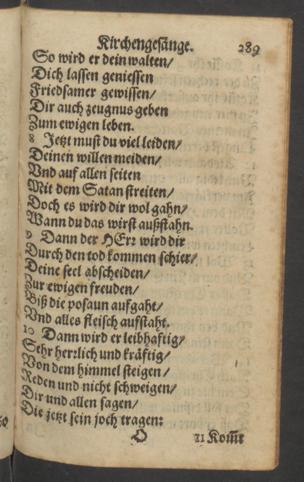 Kirchengesänge. 289
So wird er dein walten/
Dich lassen geniessen
Friedsamer gewissen/
Dir auch zeugnus geben
Zum ewigen leben.
8 Jetzt must du viel leiden/
Deinen willen meiden/
Vnd auf allen seiten
Mit dem Satan streiten/
Doch es wird dir wol gahn/
Wann du das wirst außstahn.
9 Dann der HErr wird dir
Durch den tod kommen schier/
Deine seel abscheiden/
Zur ewigen freuden/
Biß die posaun aufgaht/
Vnd alles fleisch aufstaht.
10 Dann wird er leibhaftig/
Sehr herrlich und kräftig/
Von dem himmel steigen/
Reden und nicht schweigen/
Dir und allen sagen/
Die jetzt sein joch tragen:
O 11 Kom̃t